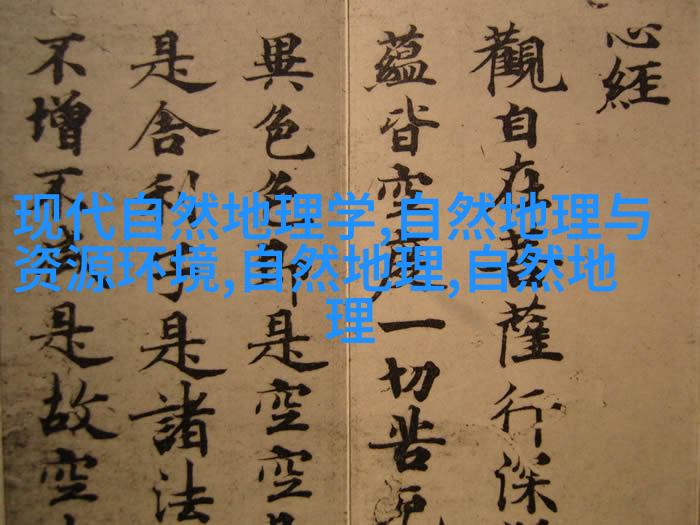 心經
觀自在菩薩行深
蘊皆空度一切苦厄
異色色即是空空
是舍利子是諸法
不增不是故空
现代自然地理学,自然地理与
资源环境,自然地理,自然地
理